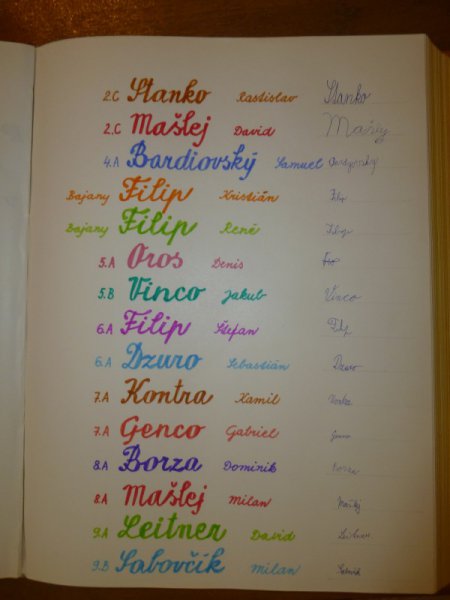 2.C Stanko Rastislav Stanko
2.C Mašlej David Mašlej
4.A Bardiovský Samuel
Bajany Filip Kristián Filip
Bajany Filip René Filip
5.A Oros Denis
5.B Vinco Jakub Vinco
6.A Filip Štefan Filip
6.A Dzuro Sebastián Dzuro
7.A Kontra Kamil
7.A Genco Gabriel Genco
8.A Borza Dominik Borza
8.A Mašlej Milan Mašlej
9.A Leitner David Leitner
9.B Sabovčík Milan